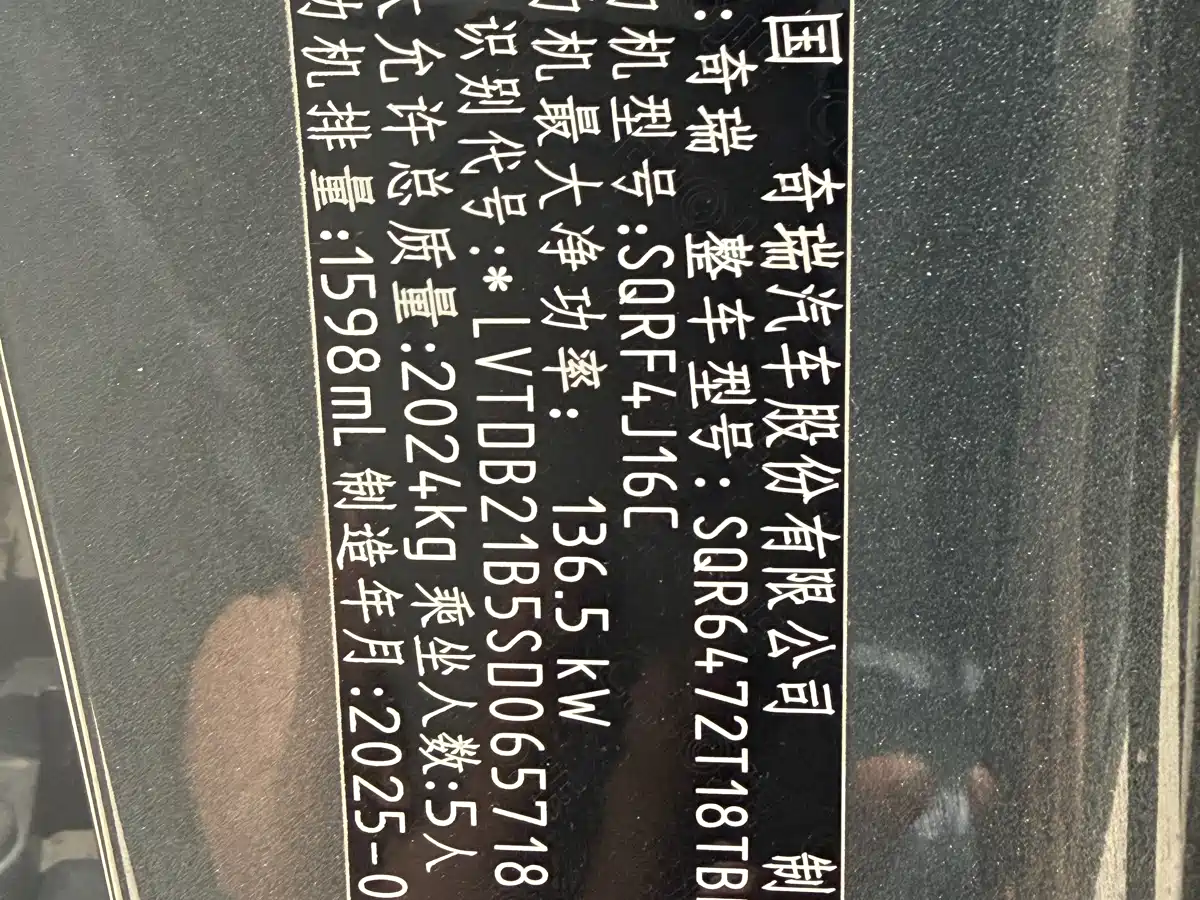 国 奇瑞汽车股份有限公司 制
:奇瑞 整车型号:SQR6472T18TB
机型号:SQRF4J16C
机最大净功率: 136.5kW
识别代号:*LVTDB21B5SD065718
允许总质量:2024kg 乘坐人数:5人
动机排量:1598mL 制造年月:2025-0